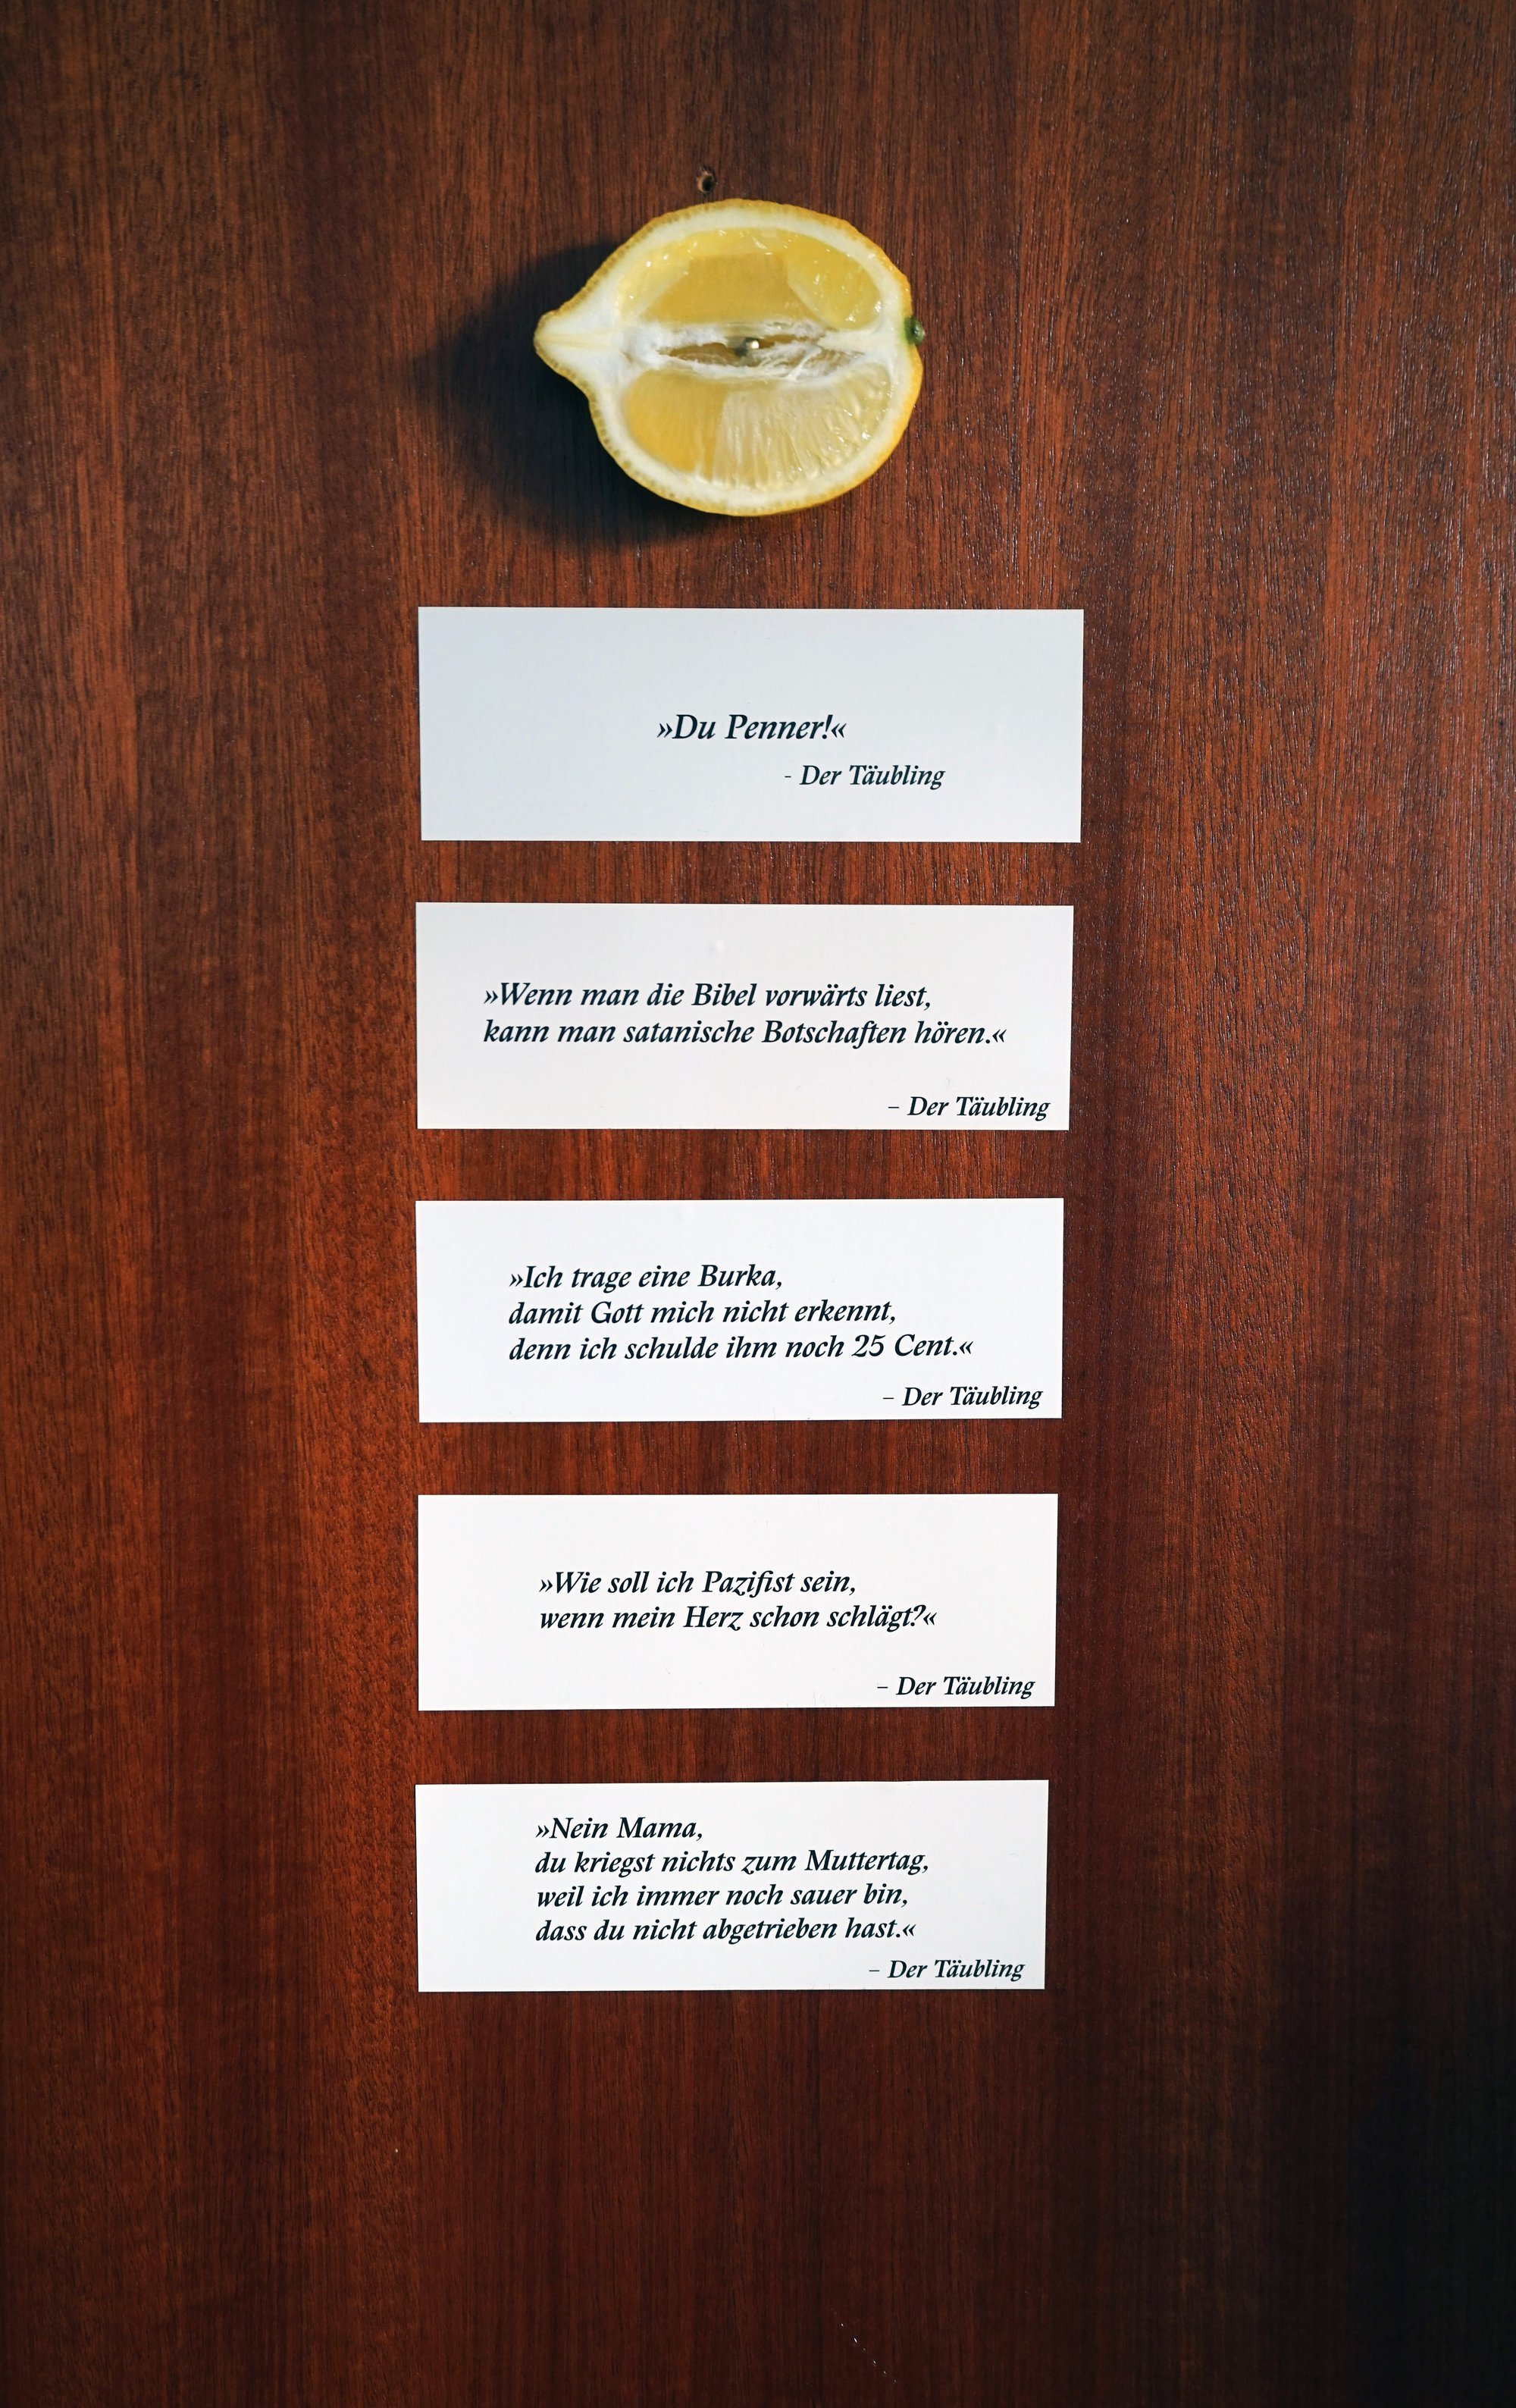 »Du Penner!«
- Der Täubling
»Wenn man die Bibel vorwärts liest,
kann man satanische Botschaften hören.«
– Der Täubling
»Ich trage eine Burka,
damit Gott mich nicht erkennt,
denn ich schulde ihm noch 25 Cent.«
– Der Täubling
»Wie soll ich Pazifist sein,
wenn mein Herz schon schlägt?«
– Der Täubling
»Nein Mama,
du kriegst nichts zum Muttertag,
weil ich immer noch sauer bin,
dass du nicht abgetrieben hast.«
– Der Täubling